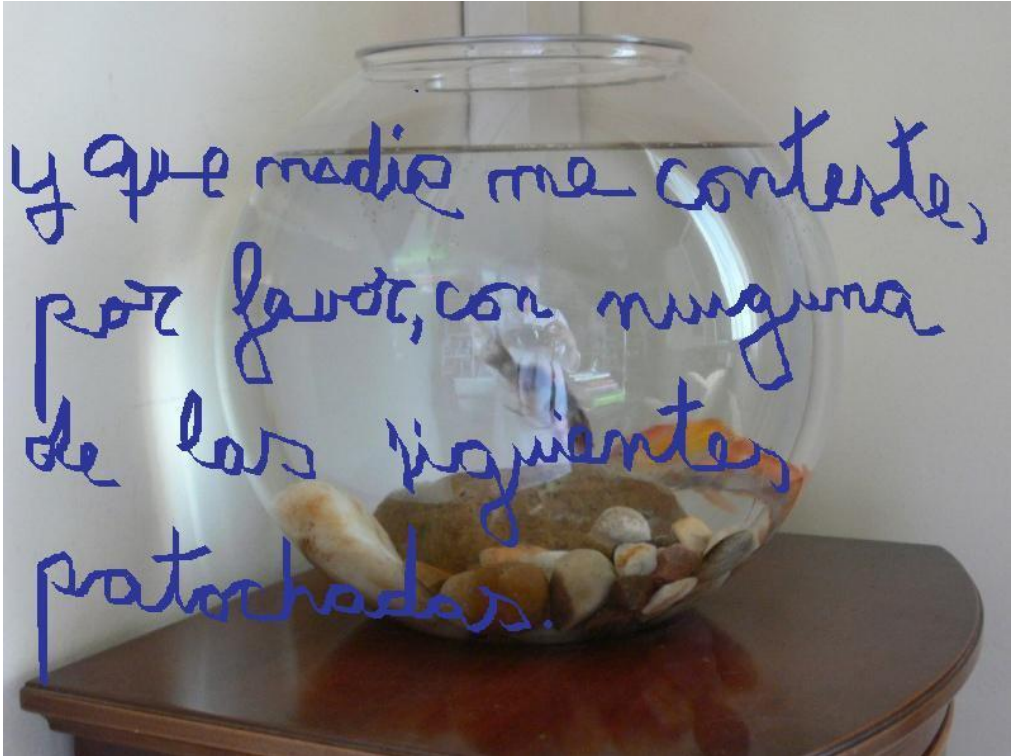 y que nadie me conteste,
por favor, con ninguna
de las siguientes
patochadas.